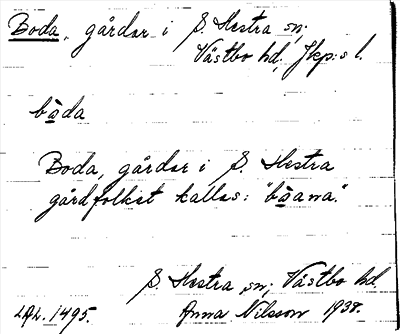 Boda, gårdar i S. Hestra sn,
Västbo hd, Jkp:s l.
båda
Boda, gårdar i S. Hestra
gårdfolket kallas: "båana."
S. Hestra sn, Västbo hd.
LAL. 1495. Anna Nilsson 1938.